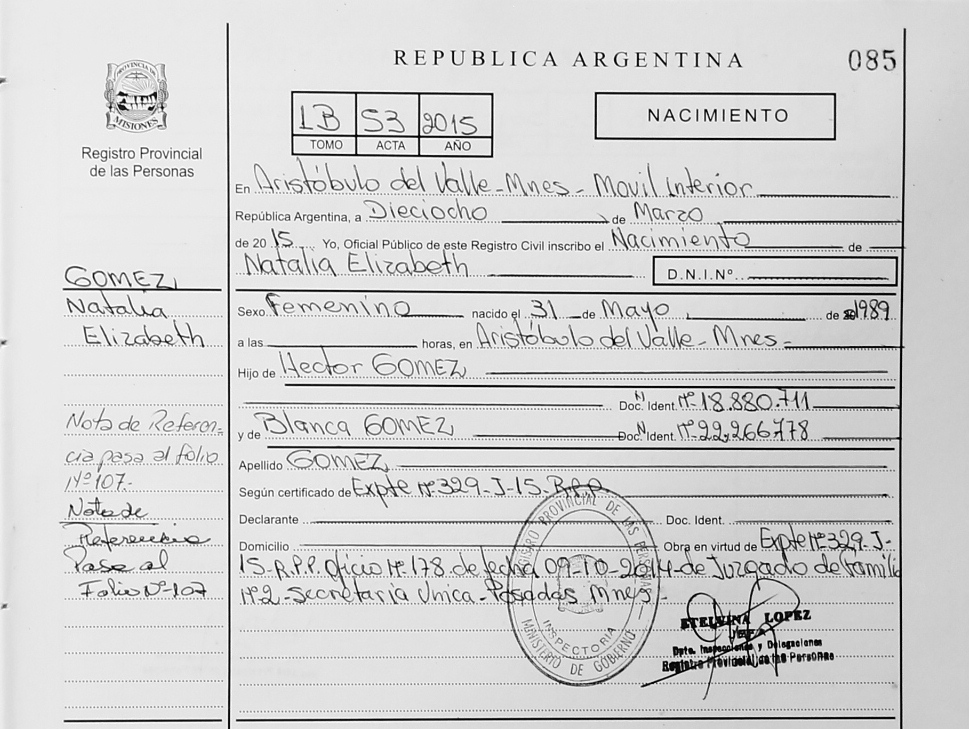 REPUBLICA ARGENTINA
085
PROVINCIA DE MISIONES
Registro Provincial
de las Personas
1B 53 2015
TOMO ACTA AÑO
NACIMIENTO
En Aristóbulo del Valle - Mnes - Movil Interior
República Argentina, a Dieciocho de Marzo
de 20 15 Yo, Oficial Público de este Registro Civil inscribo el Nacimiento de
Natalia Elizabeth D.N.I.Nº
Sexo Femenino nacido el 31 de Mayo de 1989
a las horas, en Aristóbulo del Valle - Mnes -
Hijo de Hector GOMEZ
Doc. Ident. Nº 18.880.711
y de Blanca GOMEZ Doc. Ident. Nº 22.266778
Apellido GOMEZ
Según certificado de Expte Nº 329-J-15-R.P.P.
Declarante Doc. Ident.
Domicilio Obra en virtud de Expte Nº 329-J-
15-R.P.P. Oficio Nº 178 de fecha 09-10-2014 de Juzgado de Familia
Nº2 - Secretaría Unica - Posadas Mnes -
GOMEZ
Natalia
Elizabeth
Nota de Referen-
cia pasa al folio
Nº 107.-
Nota de
Referencia
Pasa al
Folio Nº 107
REGISTRO PROVINCIAL DE LAS PERSONAS
INSPECTORIA
MINISTERIO DE GOBIERNO
ETELVINA LOPEZ
JEFA
Dpto. Inspecciones y Delegaciones
Registro Provincial de las Personas